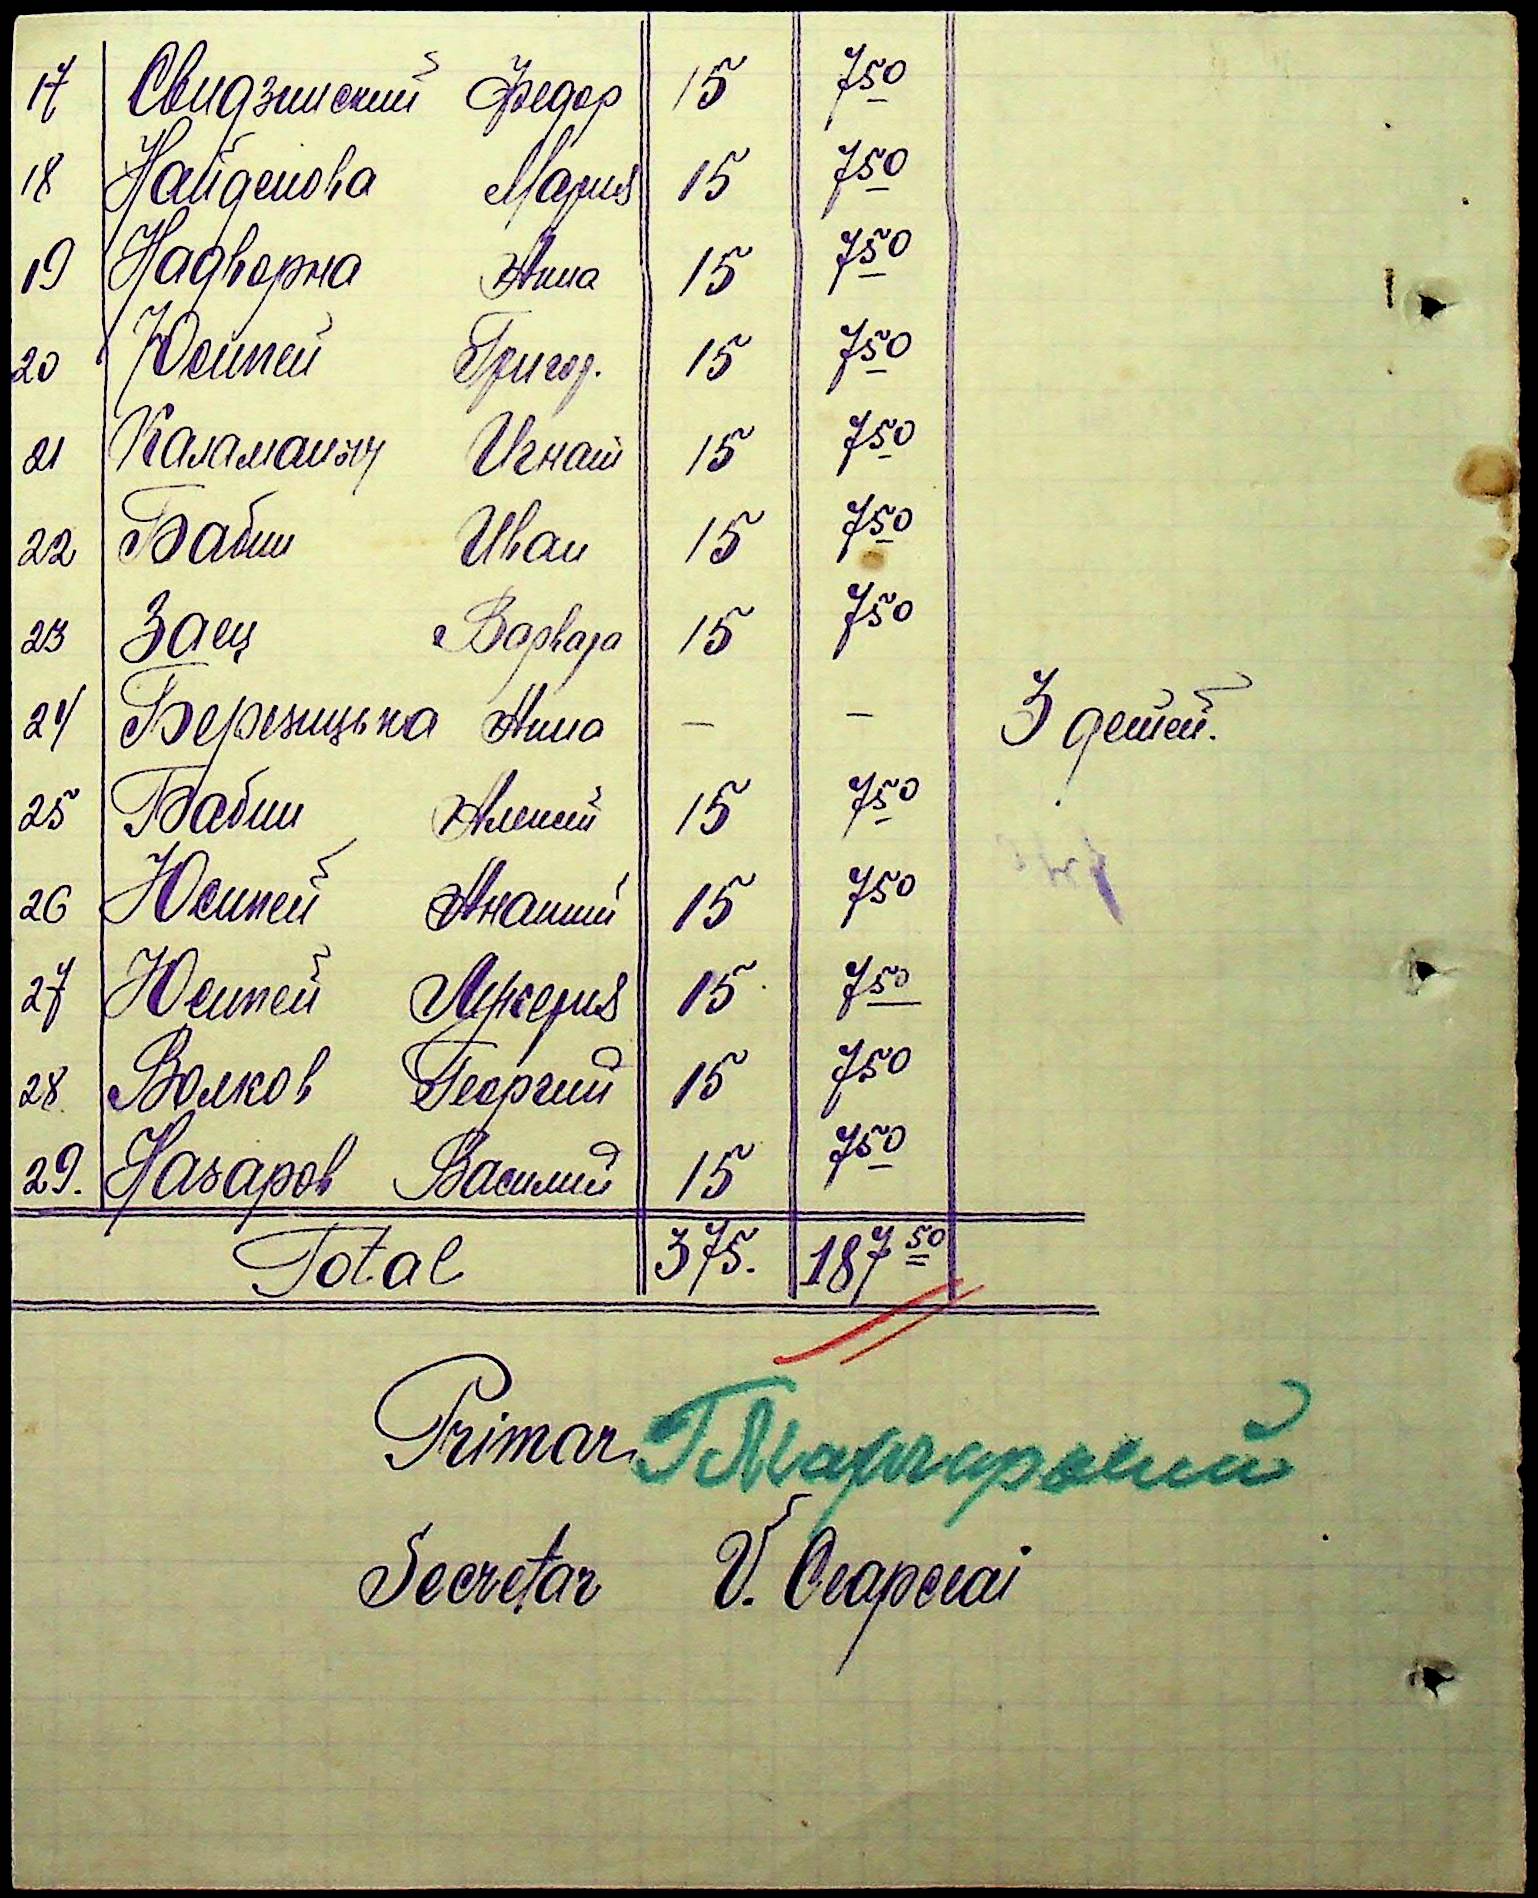 17 Свидзинский Федор 15 7 50
18 Найденова Мария 15 7 50
19 Надворна Анна 15 7 50
20 Юсипей Григор. 15 7 50
21 Игнат 15 7 50
22 Бабин Иван 15 7 50
23 Заец Варвара 15 7 50
24 Березицька Анна — — 3 детей.
25 Бабин Алексей 15 7 50
26 Юсипей Ананий 15 7 50
27 Юсипей Лукерия 15 7 50
28 Волков Георгий 15 7 50
29. Назаров Василий 15 7 50
Total 375. 187 50
Primar
Secretar V.